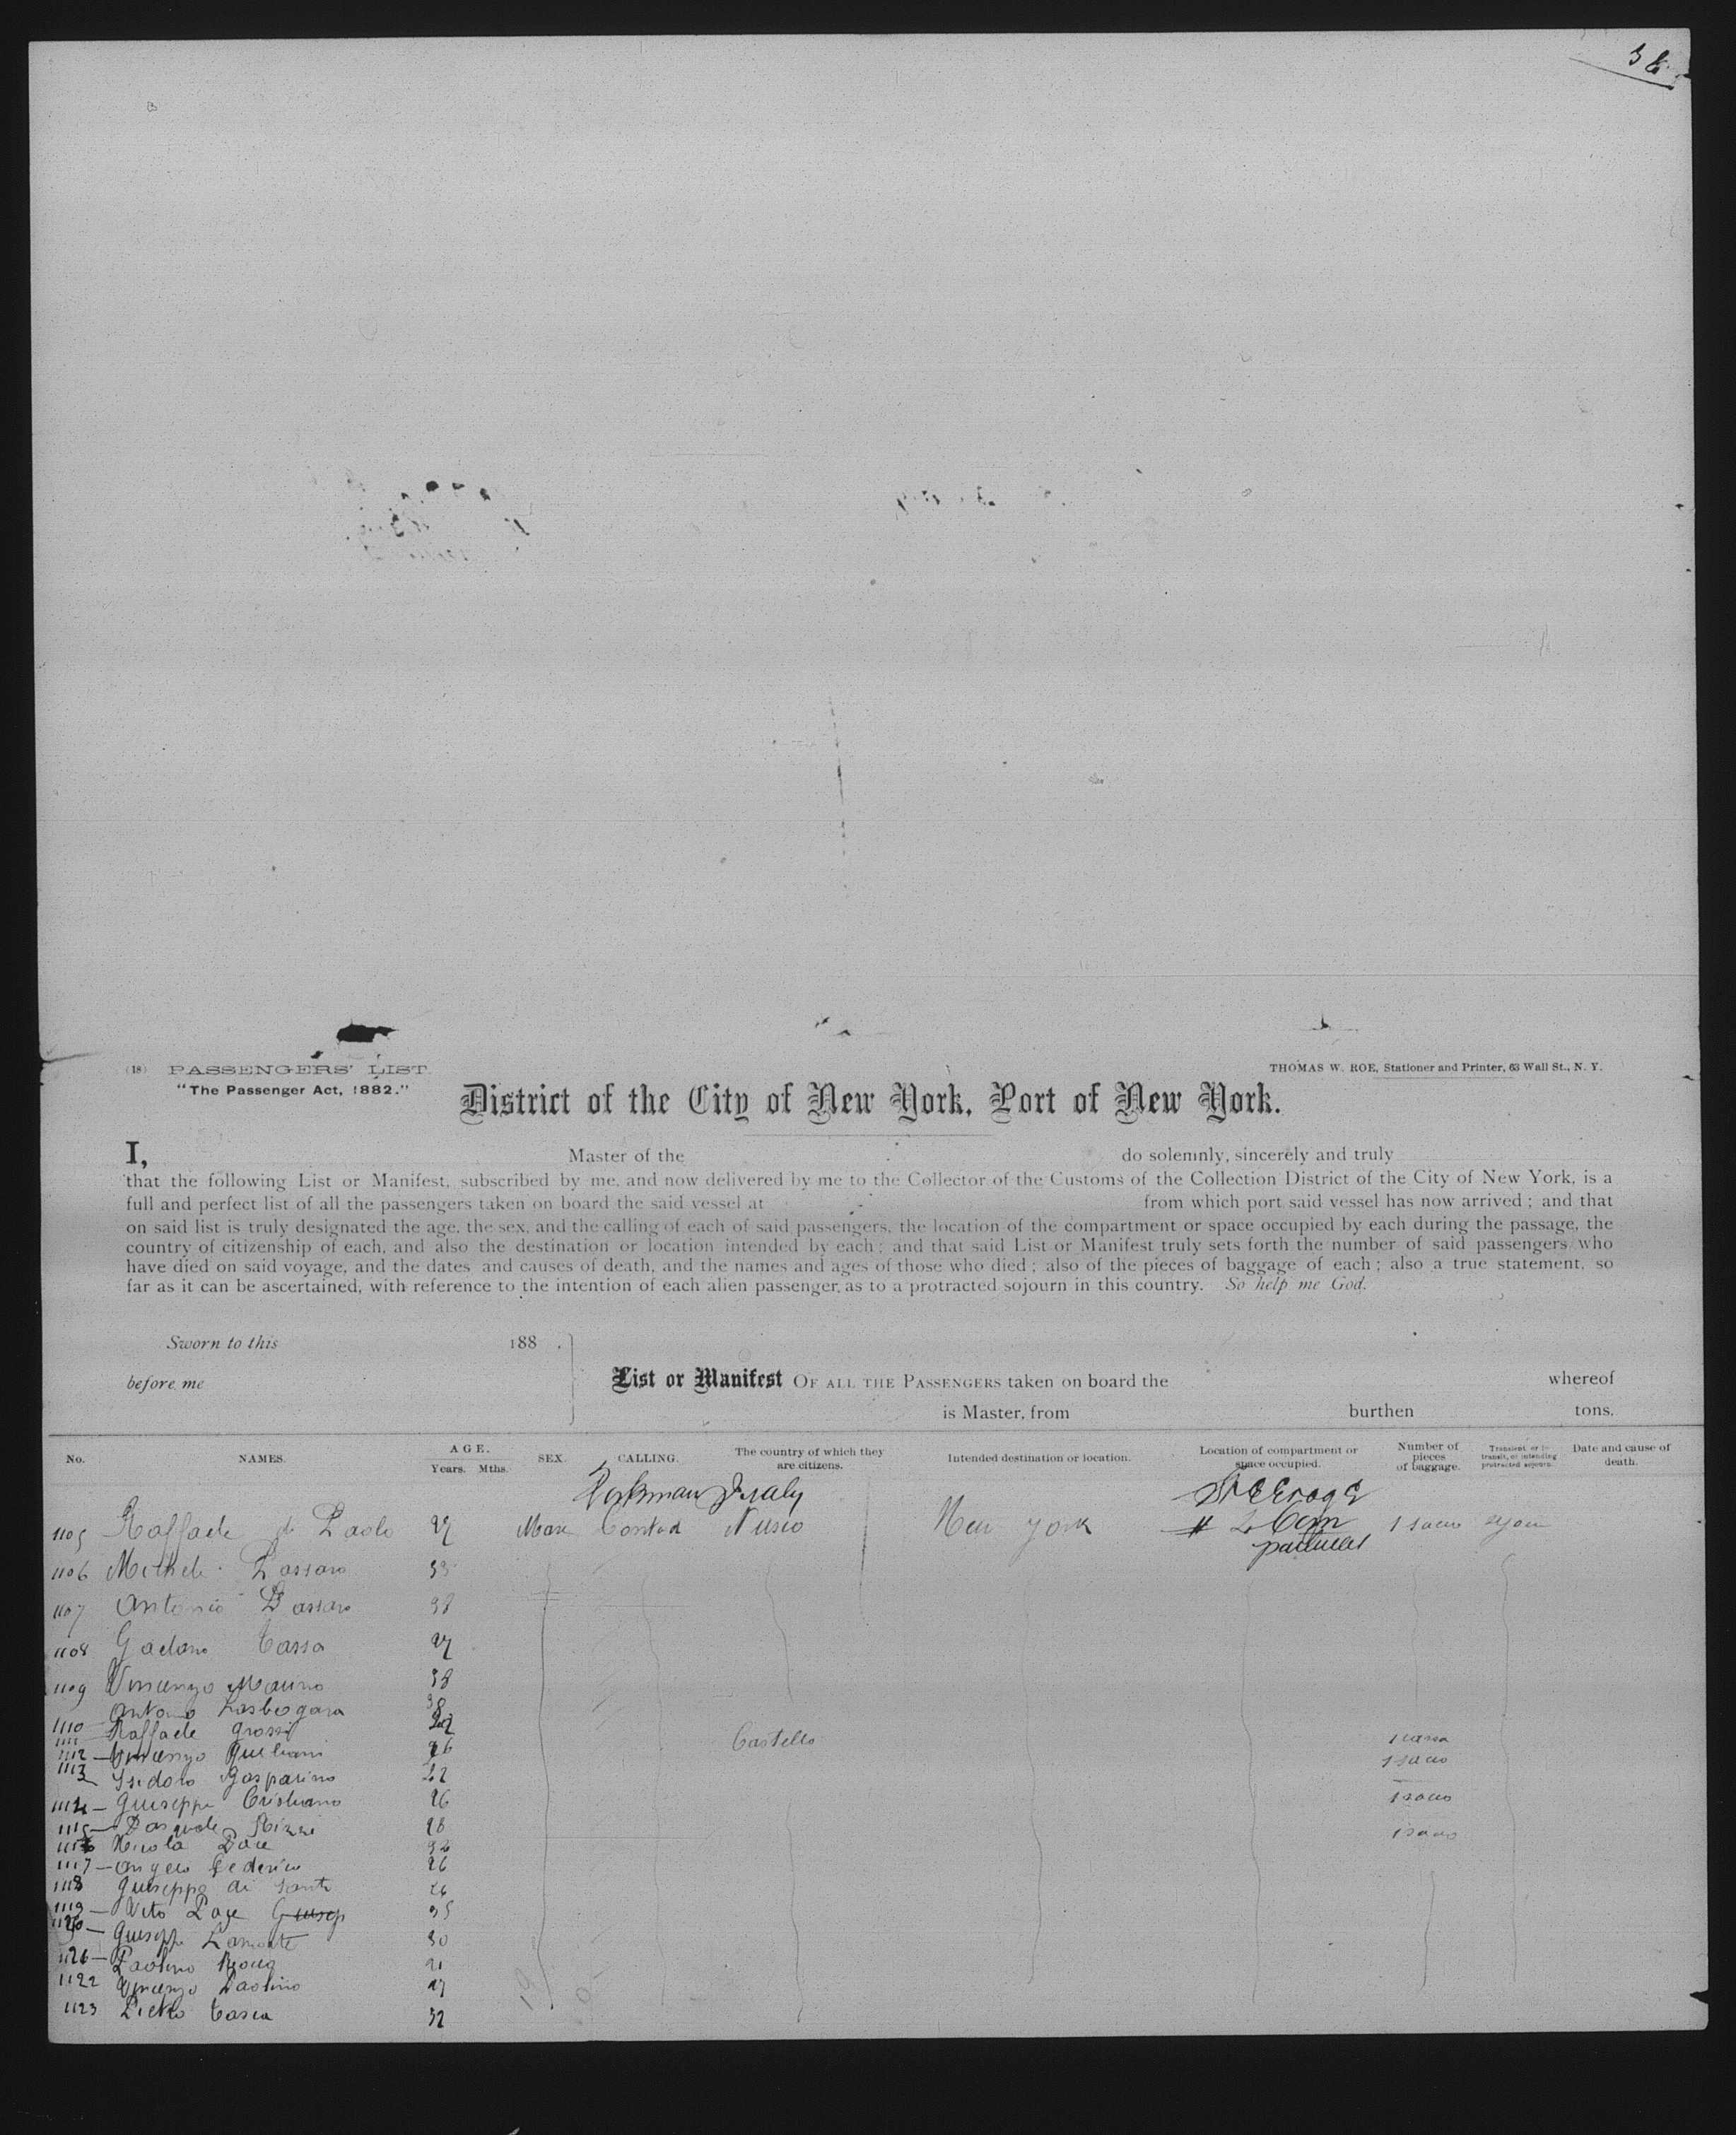 (18) PASSENGERS' LIST.
"The Passenger Act, 1882."
THOMAS W. ROE, Stationer and Printer, 63 Wall St., N. Y.
District of the City of New York, Port of New York.
I, Master of the do solemnly, sincerely and truly
that the following List or Manifest, subscribed by me, and now delivered by me to the Collector of the Customs of the Collection District of the City of New York, is a
full and perfect list of all the passengers taken on board the said vessel at from which port said vessel has now arrived; and that
on said list is truly designated the age, the sex, and the calling of each of said passengers, the location of the compartment or space occupied by each during the passage, the
country of citizenship of each, and also the destination or location intended by each; and that said List or Manifest truly sets forth the number of said passengers who
have died on said voyage, and the dates and causes of death, and the names and ages of those who died; also of the pieces of baggage of each; also a true statement, so
far as it can be ascertained, with reference to the intention of each alien passenger, as to a protracted sojourn in this country. So help me God.
Sworn to this 188 .
before me
List or Manifest OF ALL THE PASSENGERS taken on board the whereof
is Master, from burthen tons.
No. NAMES. AGE. Years. Mths. SEX. CALLING. The country of which they are citizens. Intended destination or location. Location of compartment or space occupied. Number of pieces of baggage. Transient or in transit, or intending protracted sojourn. Date and cause of death.
Workman Italy Steerage
1105 Raffaele di Paolo 27 New York # 2 Com
1106 Michele 33
1107 Antonio 38
1108 Gaetano 27
1109 Vincenzo Mauro 38
1110 Antonio 38
1111 Raffaele Grossi Castello
1112 Vincenzo Giuliani 26
1113 Isidoro Gasparino 22
1114 Giuseppe Cristiano 26
1115 Pasquale Rizzi 28
1116 Nicola Pace 32
1117 Angelo Federico 26
1118 Giuseppe di Santi 26
1119 Vito Pace 35
1120 Giuseppe 30
Paolino 21
1122 Vincenzo Paolino 27
1123 Pietro Casca 32